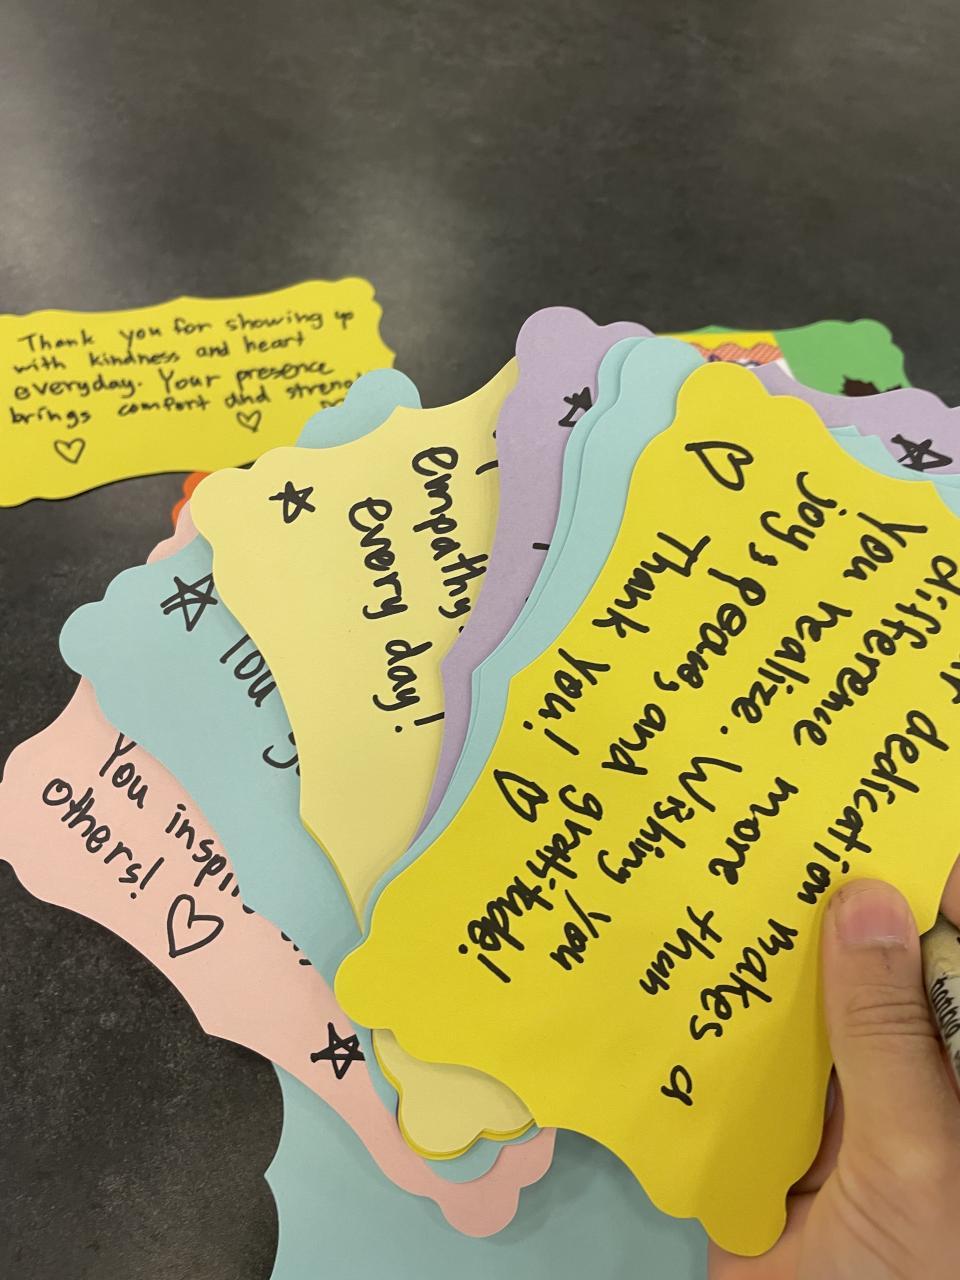 Thank you for showing up
with kindness and heart
everyday. Your presence
brings comfort and
empathy
every day!
You
You
others!
dedication makes a
difference more than
you realize. Wishing you
joy, peace, and gratitude!
Thank you!